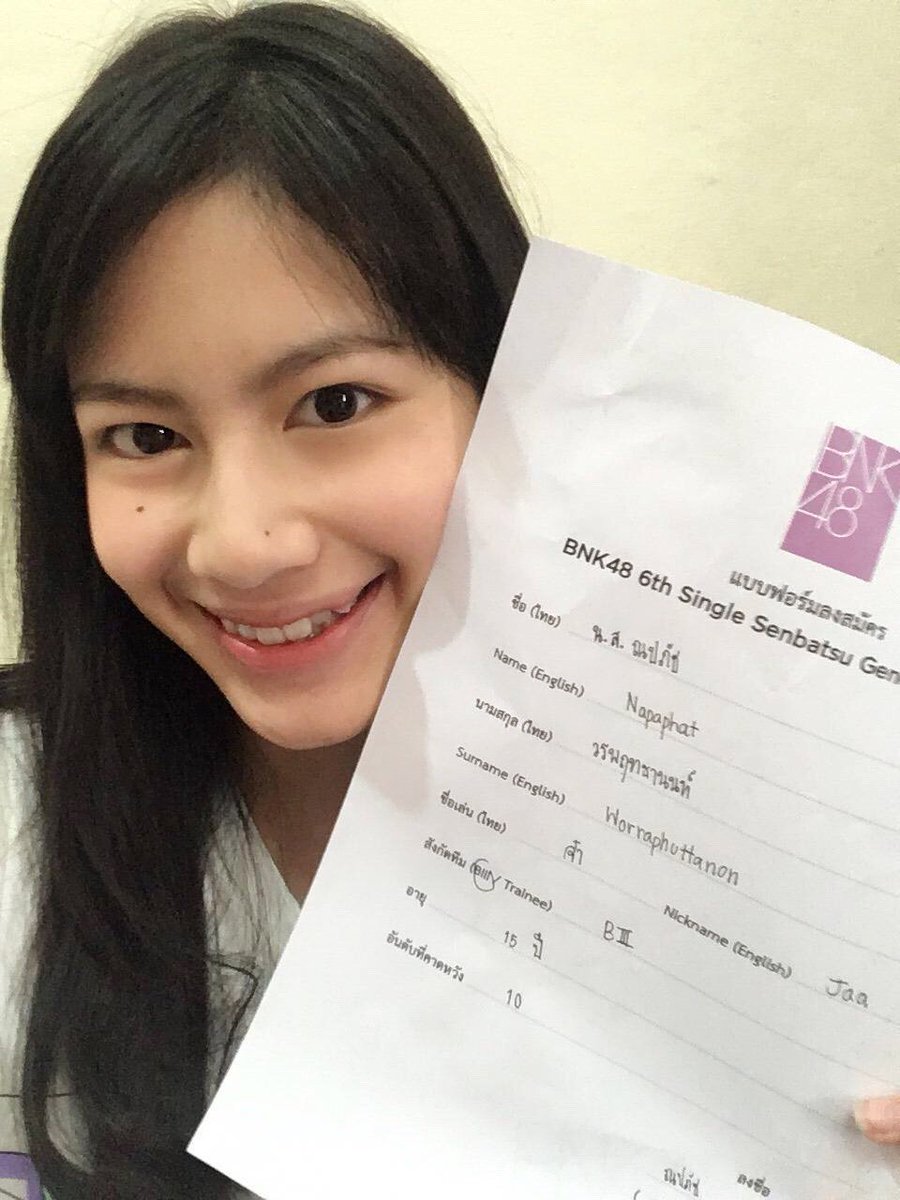 BNK
48
แบบฟอร์มลงสมัคร
BNK48 6th Single Senbatsu Gen
ชื่อ (ไทย) น.ส. ณปภัช
Name (English) Napaphat
นามสกุล (ไทย) วรพฤทธานนท์
Surname (English) Worraphuttanon
ชื่อเล่น (ไทย) จ๋า Nickname (English) Jaa
สังกัดทีม (BIII / Trainee) BIII
อายุ 15 ปี
อันดับที่คาดหวัง 10
ลงชื่อ
ณปภัช